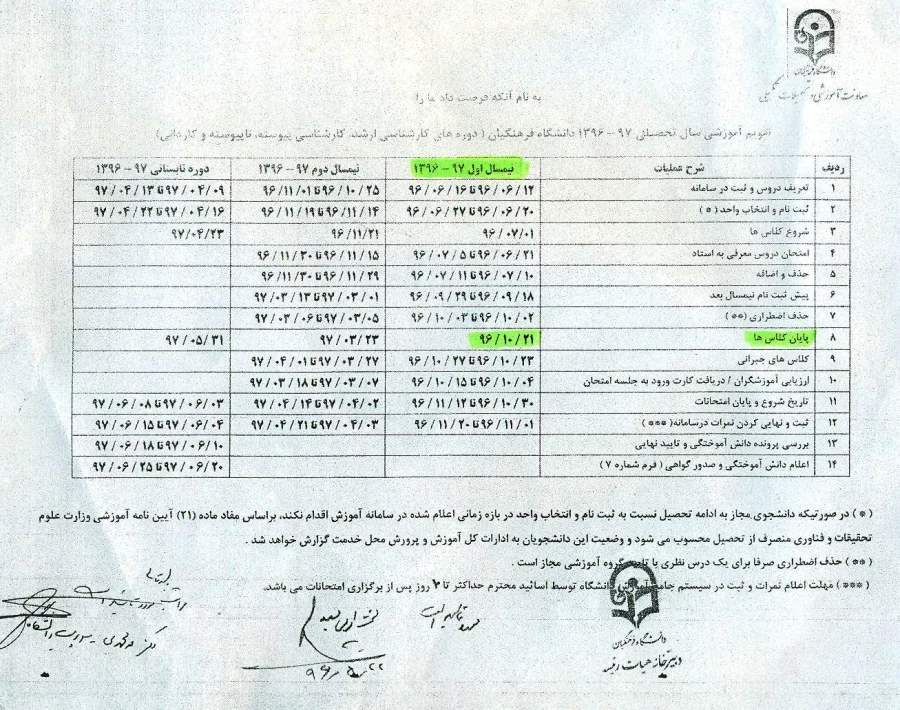 دانشگاه فرهنگیان
معاونت آموزشی و تحصیلات تکمیلی
به نام آنکه فرصت داد ما را
تقویم آموزشی سال تحصیلی ۹۷ - ۱۳۹۶ دانشگاه فرهنگیان ( دوره های کارشناسی ارشد، کارشناسی پیوسته، ناپیوسته و کاردانی)
ردیف شرح عملیات نیمسال اول ۹۷ - ۱۳۹۶ نیمسال دوم ۹۷ - ۱۳۹۶ دوره تابستانی ۹۷ - ۱۳۹۶
۱ تعریف دروس و ثبت در سامانه ۹۶/۰۶/۱۲ تا ۹۶/۰۶/۱۶ ۹۶/۱۰/۲۵ تا ۹۶/۱۱/۰۱ ۹۷/۰۴/۰۹ تا ۹۷/۰۴/۱۳
۲ ثبت نام و انتخاب واحد ( * ) ۹۶/۰۶/۲۰ تا ۹۶/۰۶/۲۷ ۹۶/۱۱/۱۴ تا ۹۶/۱۱/۱۹ ۹۷/۰۴/۱۶ تا ۹۷/۰۴/۲۲
۳ شروع کلاس ها ۹۶/۰۷/۰۱ ۹۶/۱۱/۲۱ ۹۷/۰۴/۲۳
۴ امتحان دروس معرفی به استاد ۹۶/۰۶/۲۱ تا ۹۶/۰۷/۵ ۹۶/۱۱/۱۵ تا ۹۶/۱۱/۳۰
۵ حذف و اضافه ۹۶/۰۷/۱۰ تا ۹۶/۰۷/۱۱ ۹۶/۱۱/۲۹ تا ۹۶/۱۱/۳۰
۶ پیش ثبت نام نیمسال بعد ۹۶/۰۹/۱۸ تا ۹۶/۰۹/۲۹ ۹۷/۰۳/۰۱ تا ۹۷/۰۳/۱۳
۷ حذف اضطراری (**) ۹۶/۱۰/۰۲ تا ۹۶/۱۰/۰۳ ۹۷/۰۳/۰۵ تا ۹۷/۰۳/۰۶
۸ پایان کلاس ها ۹۶/۱۰/۲۱ ۹۷/۰۳/۲۳ ۹۷/۰۵/۳۱
۹ کلاس های جبرانی ۹۶/۱۰/۲۳ تا ۹۶/۱۰/۲۷ ۹۷/۰۳/۲۷ تا ۹۷/۰۴/۰۱
۱۰ ارزیابی آموزشگران / دریافت کارت ورود به جلسه امتحان ۹۶/۱۰/۰۴ تا ۹۶/۱۰/۱۵ ۹۷/۰۳/۰۷ تا ۹۷/۰۳/۱۸
۱۱ تاریخ شروع و پایان امتحانات ۹۶/۱۰/۳۰ تا ۹۶/۱۱/۱۲ ۹۷/۰۴/۰۲ تا ۹۷/۰۴/۱۴ ۹۷/۰۶/۰۳ تا ۹۷/۰۶/۰۸
۱۲ ثبت و نهایی کردن نمرات درسامانه( *** ) ۹۶/۱۱/۰۱ تا ۹۶/۱۱/۲۰ ۹۷/۰۴/۰۳ تا ۹۷/۰۴/۲۱ ۹۷/۰۶/۰۴ تا ۹۷/۰۶/۱۵
۱۳ بررسی پرونده دانش آموختگی و تایید نهایی ۹۷/۰۶/۱۰ تا ۹۷/۰۶/۱۸
۱۴ اعلام دانش آموختگی و صدور گواهی ( فرم شماره ۷ ) ۹۷/۰۶/۲۰ تا ۹۷/۰۶/۲۵
( * ) در صورتیکه دانشجوی مجاز به ادامه تحصیل نسبت به ثبت نام و انتخاب واحد در بازه زمانی اعلام شده در سامانه آموزش اقدام نکند، براساس مفاد ماده (۲۱) آیین نامه آموزشی وزارت علوم
تحقیقات و فناوری منصرف از تحصیل محسوب می شود و وضعیت این دانشجویان به ادارات کل آموزش و پرورش محل خدمت گزارش خواهد شد .
( ** ) حذف اضطراری صرفا برای یک درس نظری با تایید گروه آموزشی مجاز است .
( *** ) مهلت اعلام نمرات و ثبت در سیستم جامع دانشگاه توسط اساتید محترم حداکثر تا روز پس از برگزاری امتحانات می باشد.
دانشگاه فرهنگیان
دبیرخانه هیات رئیسه